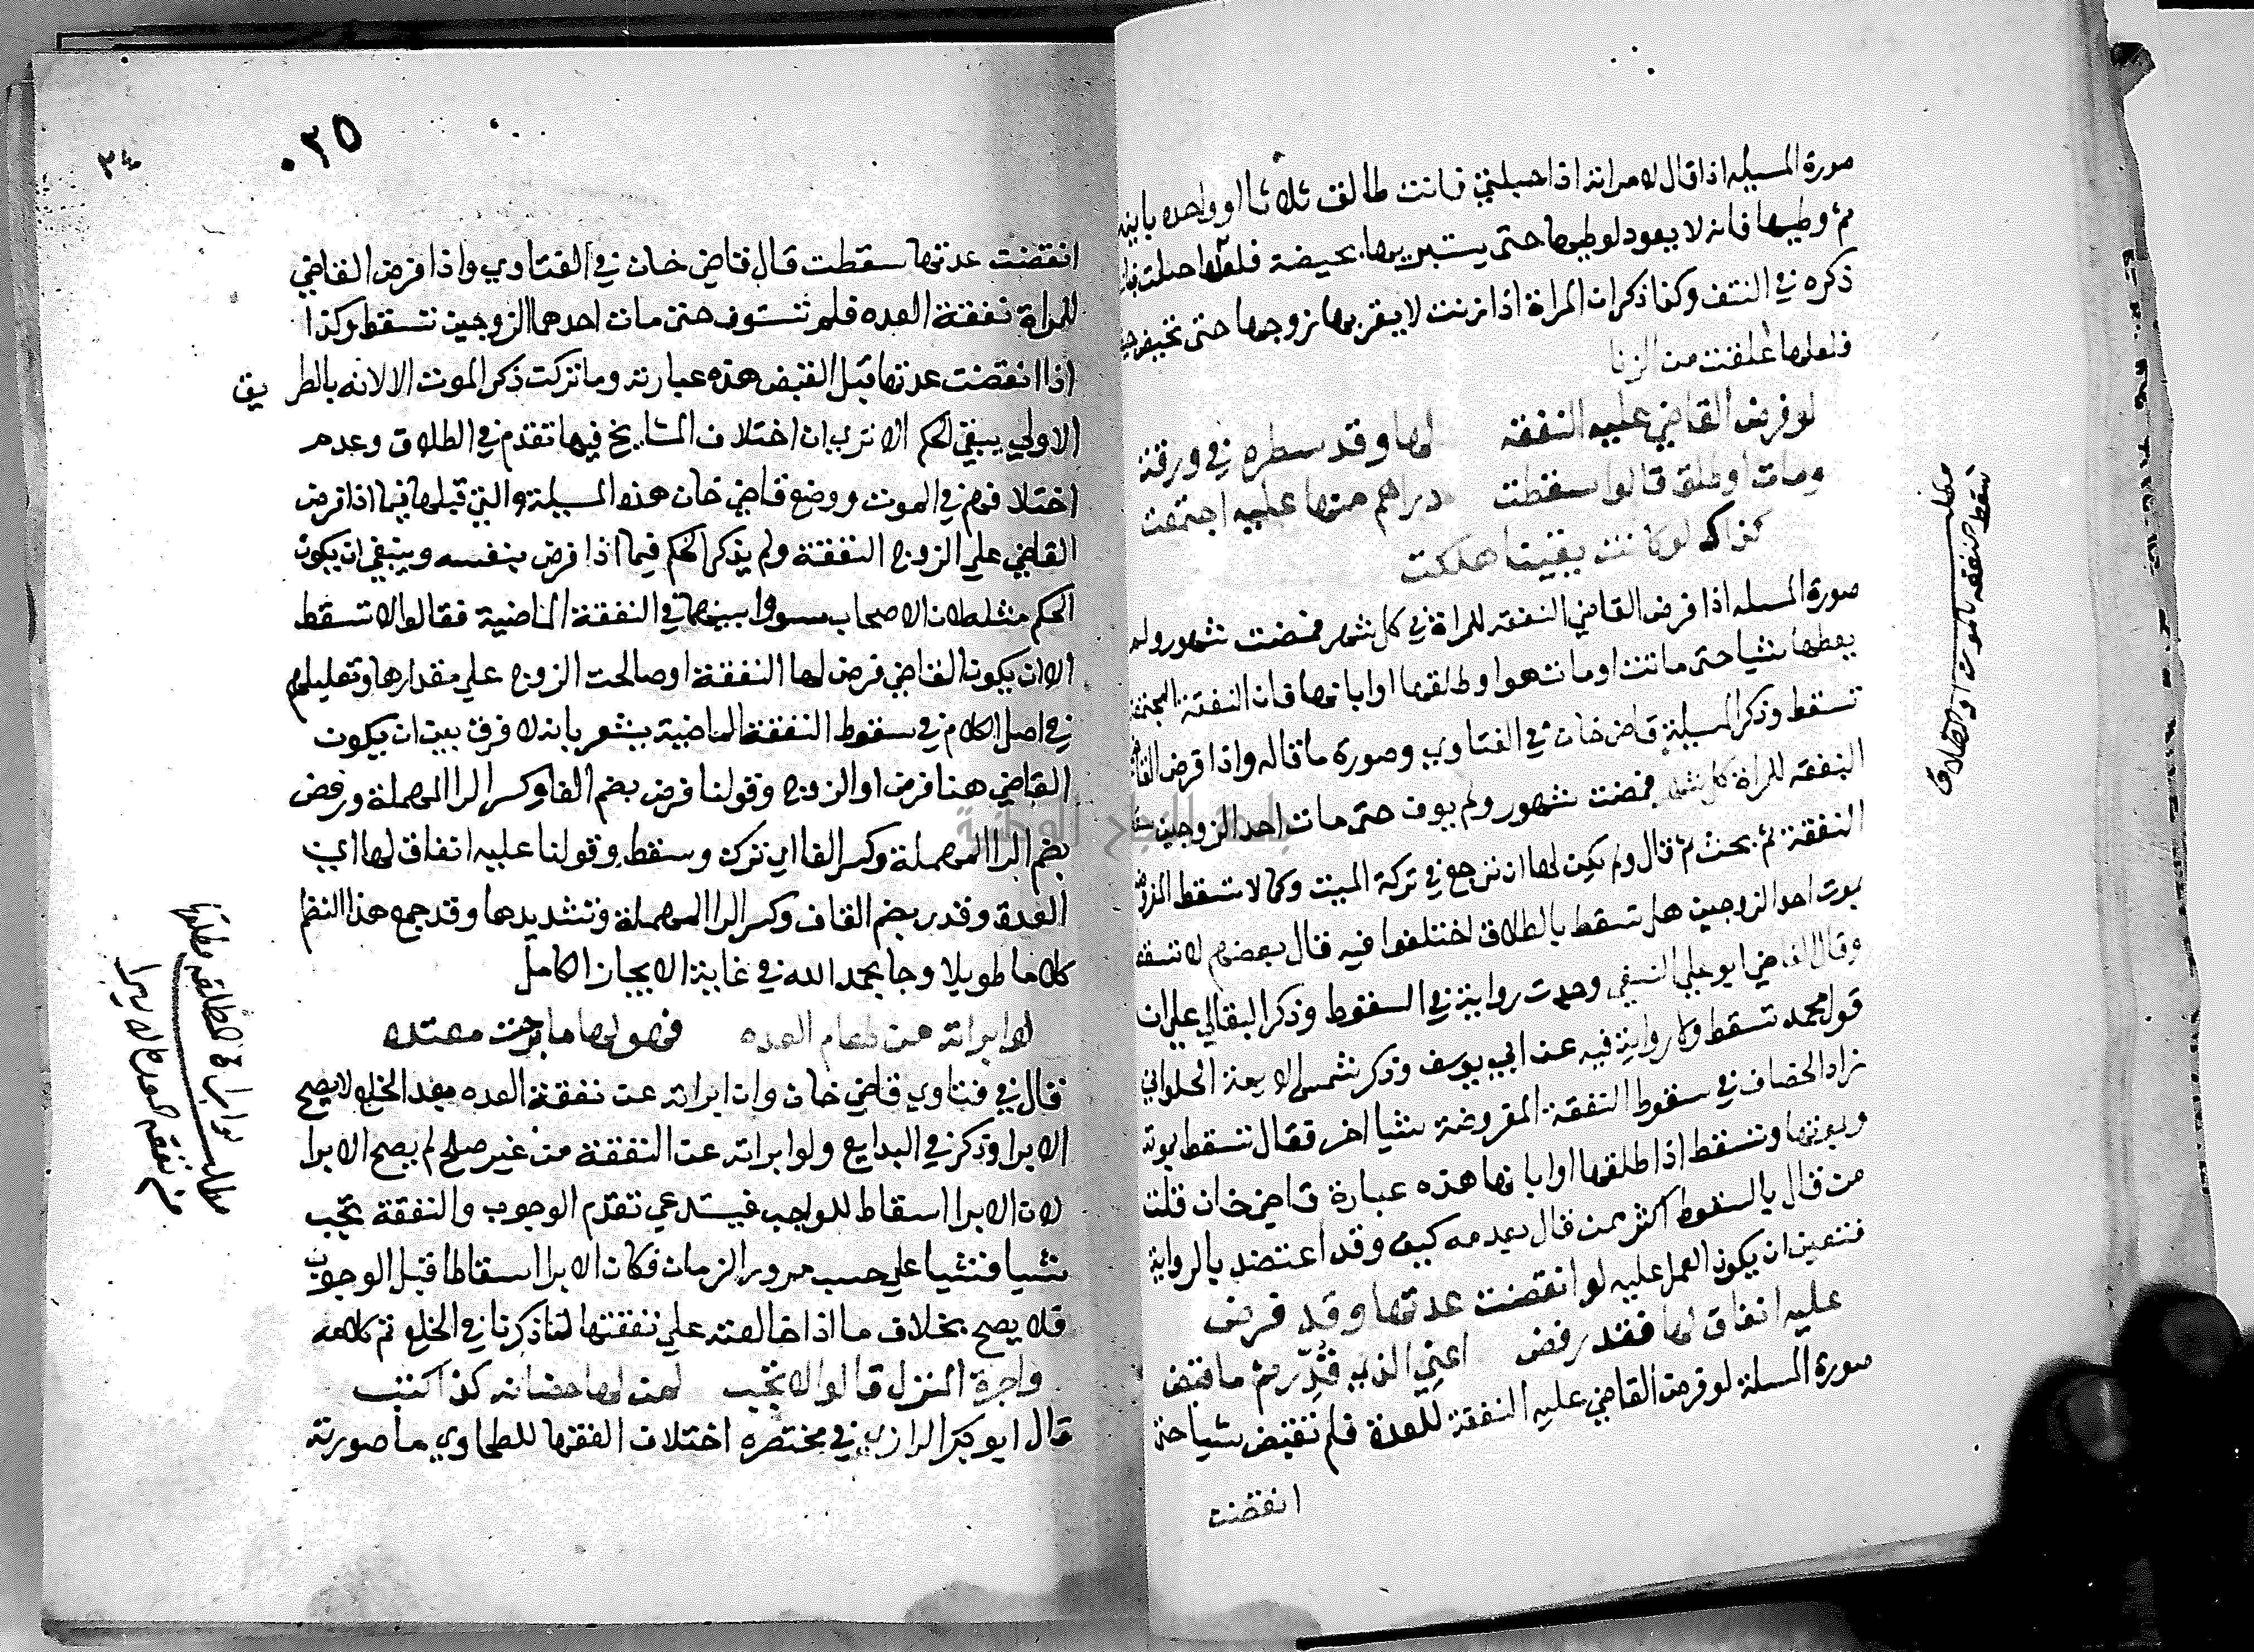 صورة المسيله اذا قال لامراته اذا حبلتي فانت طالق ثلاثا او واحده باينه
ثم وطيها فانه لا يعود لوطيها حتى يستبريها بحيضة فلعلها حبلت
ذكره في النتف وكذا ذكر ان المراة اذا زنت لا يقربها زوجها حتى تحيض
فلعلها علقت من الزنا
لو فرض القاضي عليه النفقه لها وقد سطره في ورقة
ومات او طلق قالوا سقطت دراهم منها عليه اجتمعت
كذاك لو كانت بقيتا هلكت
صورة المسله اذا فرض القاضي النفقه للمراة في كل شهر فمضت شهور ولم
يعطها شيا حتى ماتت او مات هو او طلقها او ابانها فان النفقة المجتمعة
تسقط وذكر المسيلة قاضي خان في الفتاوي وصورة ما قاله واذا فرض القاضي
النفقه للمراة كل شهر فمضت شهور ولم يوف حتى مات احد الزوجين
النفقة ثم بحث ثم قال ولم يكن لها ان ترجع في تركة الميت وكما لا تسقط
بموت احد الزوجين هل تسقط بالطلاق اختلفوا فيه قال بعضهم لا تسقط
وقال القاضي ابو علي النسفي وجدت رواية في السقوط وذكر البقالي علي ان
قول محمد تسقط ولا رواية فيه عن ابي يوسف وذكر شمس الايمة الحلواني
زاد الخصاف في سقوط النفقة المفروضة شيا اخر فقال تسقط بموته
وبموتها وتسقط اذا طلقها او ابانها هذه عبارة قاضي خان قلت
من قال بالسقوط اكثر ممن قال بعدمه كيف وقد اعتضد بالرواية
فتعين ان يكون العمل عليه لو انقضت عدتها وقد فرض
عليه انفاق لها فقد رفض اعني الذي قدر ثم ما قبض
صورة المسلة لو فرض القاضي عليه النفقة للعدة فلم تقبض شيا حتى
انقضت
مطلب
تسقط النفقه بالموت او الطلاق
٠٢٥
٢٤
انقضت عدتها سقطت قال قاضي خان في الفتاوي واذا فرض القاضي
للمراة نفقة العده فلم تستوف حتى مات احدهما الزوجين تسقط وكذا
اذا انقضت عدتها قبل القبض هذه عبارته وما تركت ذكر الموت الا لانه بالطريق
الاولي يبقي الحكم الا تري ان اختلاف المشايخ فيها تقدم في الطلاق وعدم
اختلافهم في الموت ووضع قاضي خان هذه المسيلة والتي قبلها فيما اذا فرض
القاضي علي الزوج النفقة ولم يذكر الحكم فيما اذا فرض بنفسه وينبغي ان يكون
الحكم مثله لان الاصحاب سووا بينهما في النفقة الماضية فقالوا لا تسقط
الا ان يكون القاضي فرض لها النفقة او صالحت الزوج علي مقدارها وتعليلهم
في اصل الكلام في سقوط النفقة الماضية يشعر بانه لا فرق بين ان يكون
القاضي هنا فرض او الزوج وقولنا فرض بضم الفا وكسر الرا المهملة ورفض
بضم الرا المهملة وكسر الفا اي ترك وسقط وقولنا عليه انفاق لها اي
العدة وقدر بضم القاف وكسر الرا المهملة وتشديدها وقد جمع هذا النظم
كلاما طويلا وجا بحمد الله في غاية الايجاز الكامل
لو ابراته من طعام العده فهو لها ما برحت معتده
قال في فتاوي قاضي خان وان ابراته عن نفقة العده بعد الخلع لا يصح
الابرا وذكر في البدايع ولو ابراته عن النفقة من غير صلح لم يصح الابرا
لان الابرا اسقاط للواجب فيستدعي تقدم الوجوب والنفقة تجب
شيا فشيا علي حسب مرور الزمان فكان الابرا اسقاطا قبل الوجوب
فلا يصح بخلاف ما اذا خالعته علي نفقتها لما ذكرنا في الخلع تم كلامه
واجرة المنزل قالوا لا تجب لمن لها حضانه كذا كتب
قال ابو بكر الرازي في مختصره اختلاف الفقها للطحاوي ما صورته
مطلب لو ابرات المطلقه مطلقها
من نفقه العدة لا يبرا